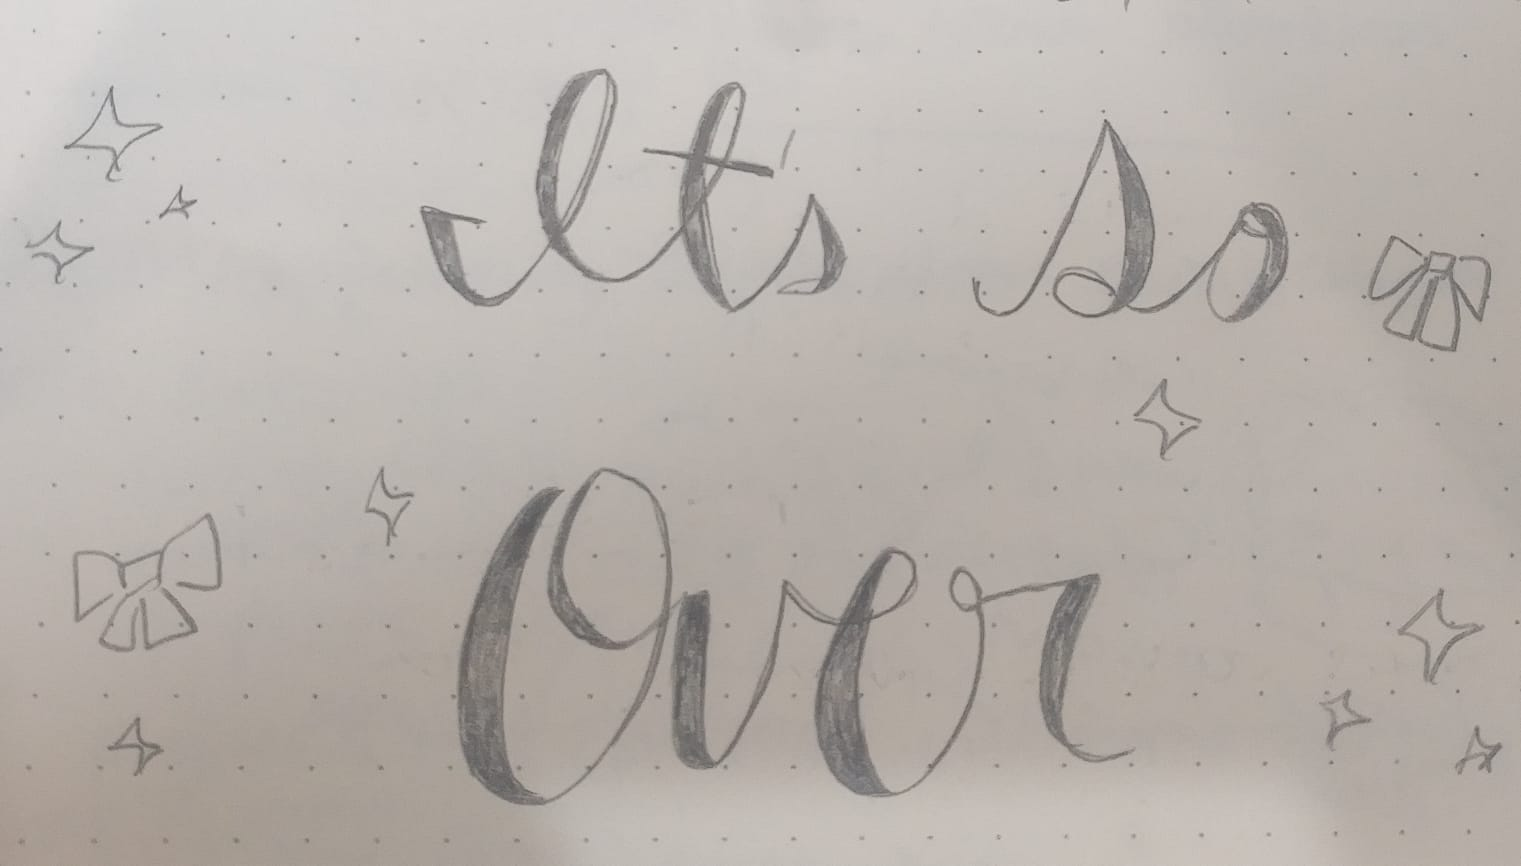 It's so
Over